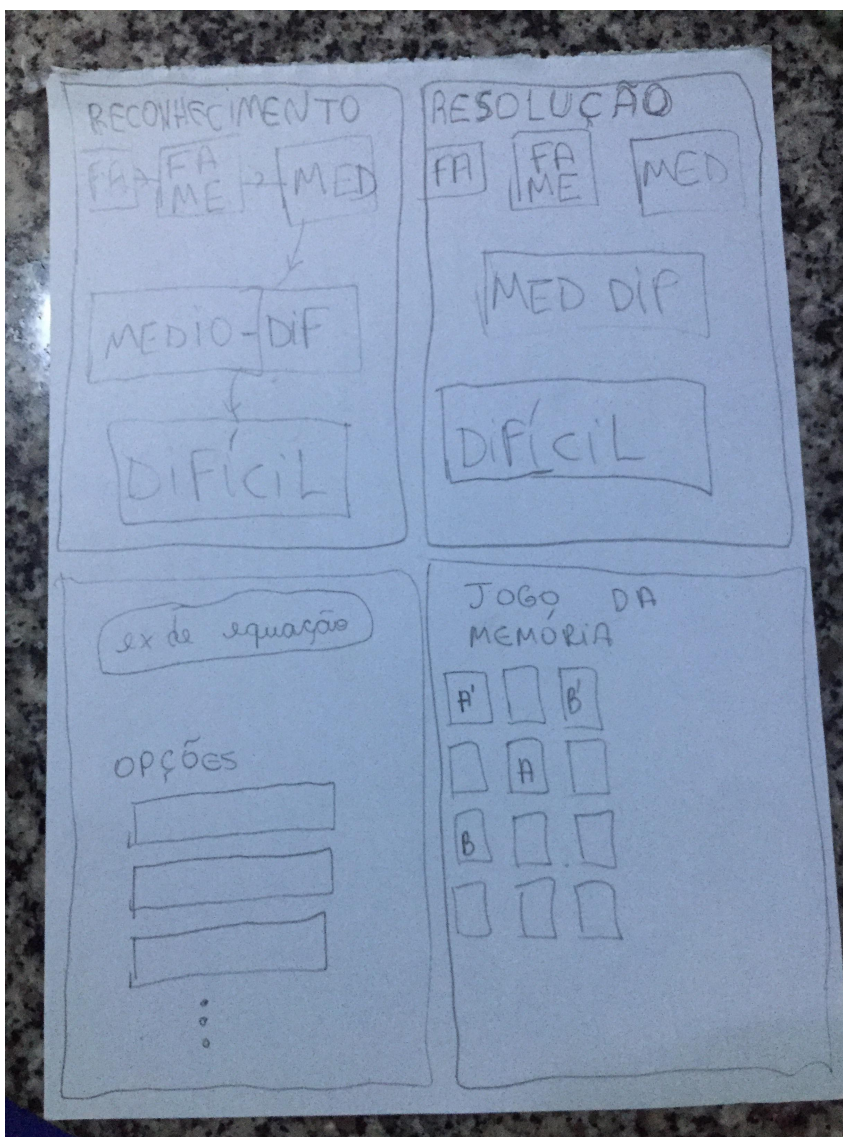 RECONHECIMENTO
FA
FA
ME
MED
MEDIO-DIF
DIFÍCIL
RESOLUÇÃO
FA
FA
ME
MED
MED DIF
DIFÍCIL
ex de equação
OPÇÕES
JOGO DA
MEMÓRIA
A' B'
A
B